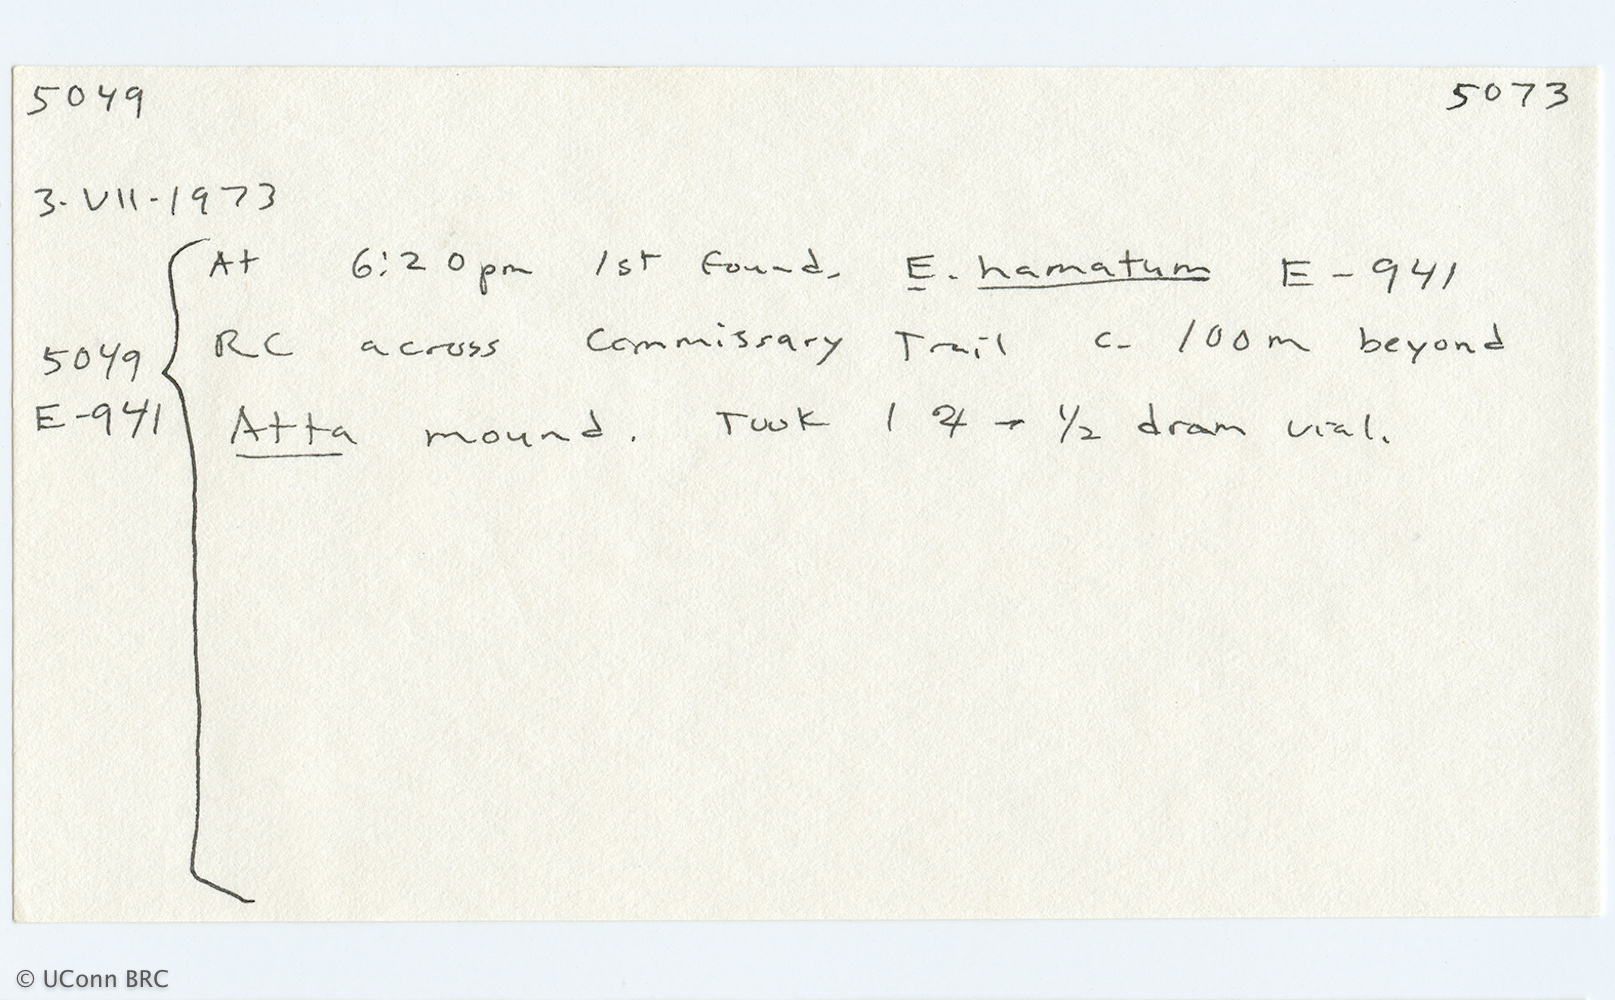 5049 5073
3-VII-1973
At 6:20pm 1st found. E. hamatum E-941
5049 RC across Commissary Trail c- 100m beyond
E-941 Atta mound. Took 1 → 1/2 dram vial.
© UConn BRC